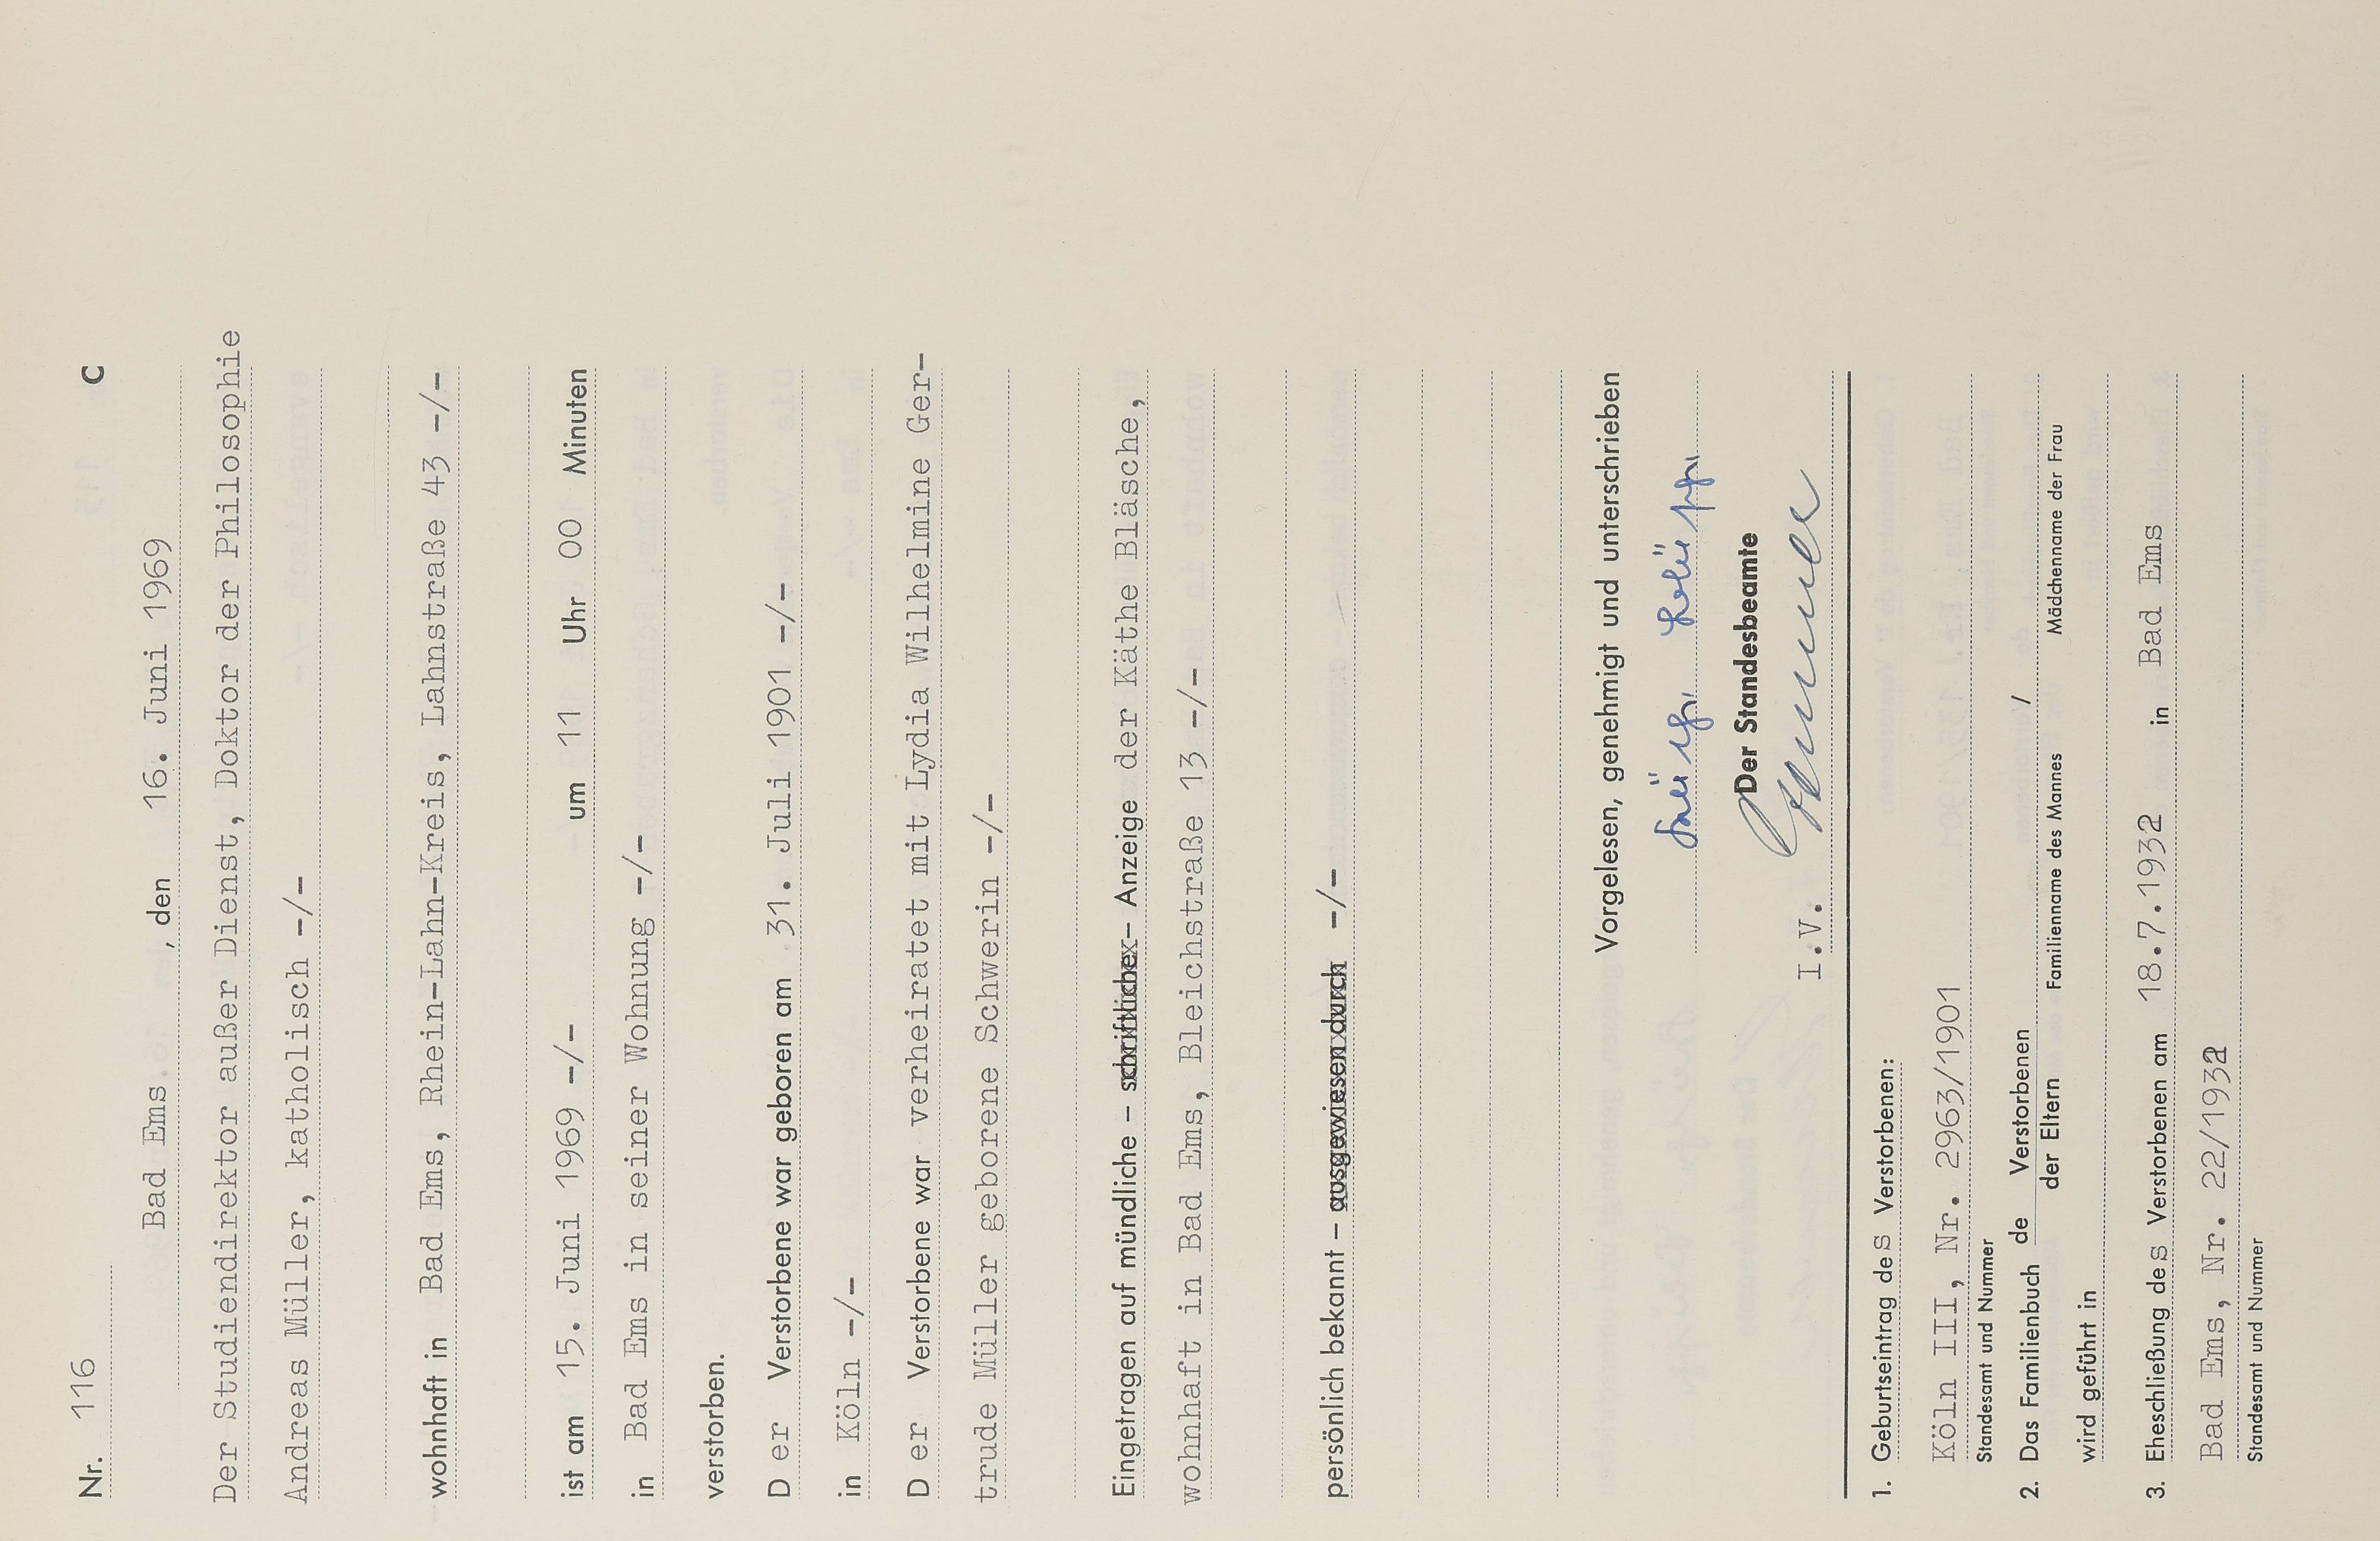 Nr. 116 C
Bad Ems, den 16. Juni 1969
Der Studiendirektor außer Dienst, Doktor der Philosophie
Andreas Müller, katholisch -/-
wohnhaft in Bad Ems, Rhein-Lahn-Kreis, Lahnstraße 43 -/-
ist am 15. Juni 1969 -/- um 11 Uhr 00 Minuten
in Bad Ems in seiner Wohnung -/-
verstorben.
Der Verstorbene war geboren am 31. Juli 1901 -/-
in Köln -/-
Der Verstorbene war verheiratet mit Lydia Wilhelmine Ger-
trude Müller geborene Schwerin -/-
Eingetragen auf mündliche - schriftliche - Anzeige der Käthe Bläsche,
wohnhaft in Bad Ems, Bleichstraße 13 -/-
persönlich bekannt - ausgewiesen durch -/-
Vorgelesen, genehmigt und unterschrieben
Der Standesbeamte
I.V.
1. Geburtseintrag des Verstorbenen:
Köln III, Nr. 2963/1901
Standesamt und Nummer
2. Das Familienbuch de Verstorbenen /
der Eltern Familienname des Mannes Mädchenname der Frau
wird geführt in
3. Eheschließung des Verstorbenen am 18.7.1932 in Bad Ems
Bad Ems, Nr. 22/1932
Standesamt und Nummer